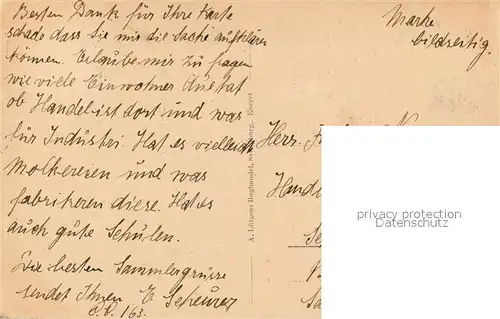 Besten Dank für Ihre Karte
schade dass Sie mir die Sache aufklären
können. Erlaube mir zu fragen
wie viele Einwohner
ob Handel ist dort und was
für Industri. Hat es vielleicht
Molkereien und was
fabrikeren diese. Hat es
auch gute Schulen.
Die besten Sammlergrüsse
sendet Ihnen E. Scheurer
Marke
bildseitig.
Herr
privacy protection
Datenschutz